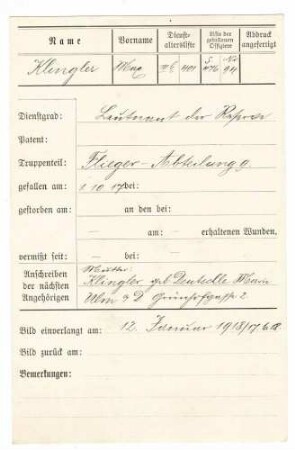 Name Vorname Dienst-altersliste Liste der gefallenen Offiziere Abdruck angefertigt
Klingler Max
Dienstgrad: Leutnant der Reserve
Patent:
Truppenteil: Flieger-Abteilung 9
gefallen am: 1 10 17 bei:
gestorben am: an den bei:
— am: — erhaltenen Wunden,
vermißt seit: — bei: —
Anschreiben der nächsten Angehörigen
Mutter:
Klingler geb
Ulm a D
Bild einverlangt am: 12. Januar 1918
Bild zurück am:
Bemerkungen: